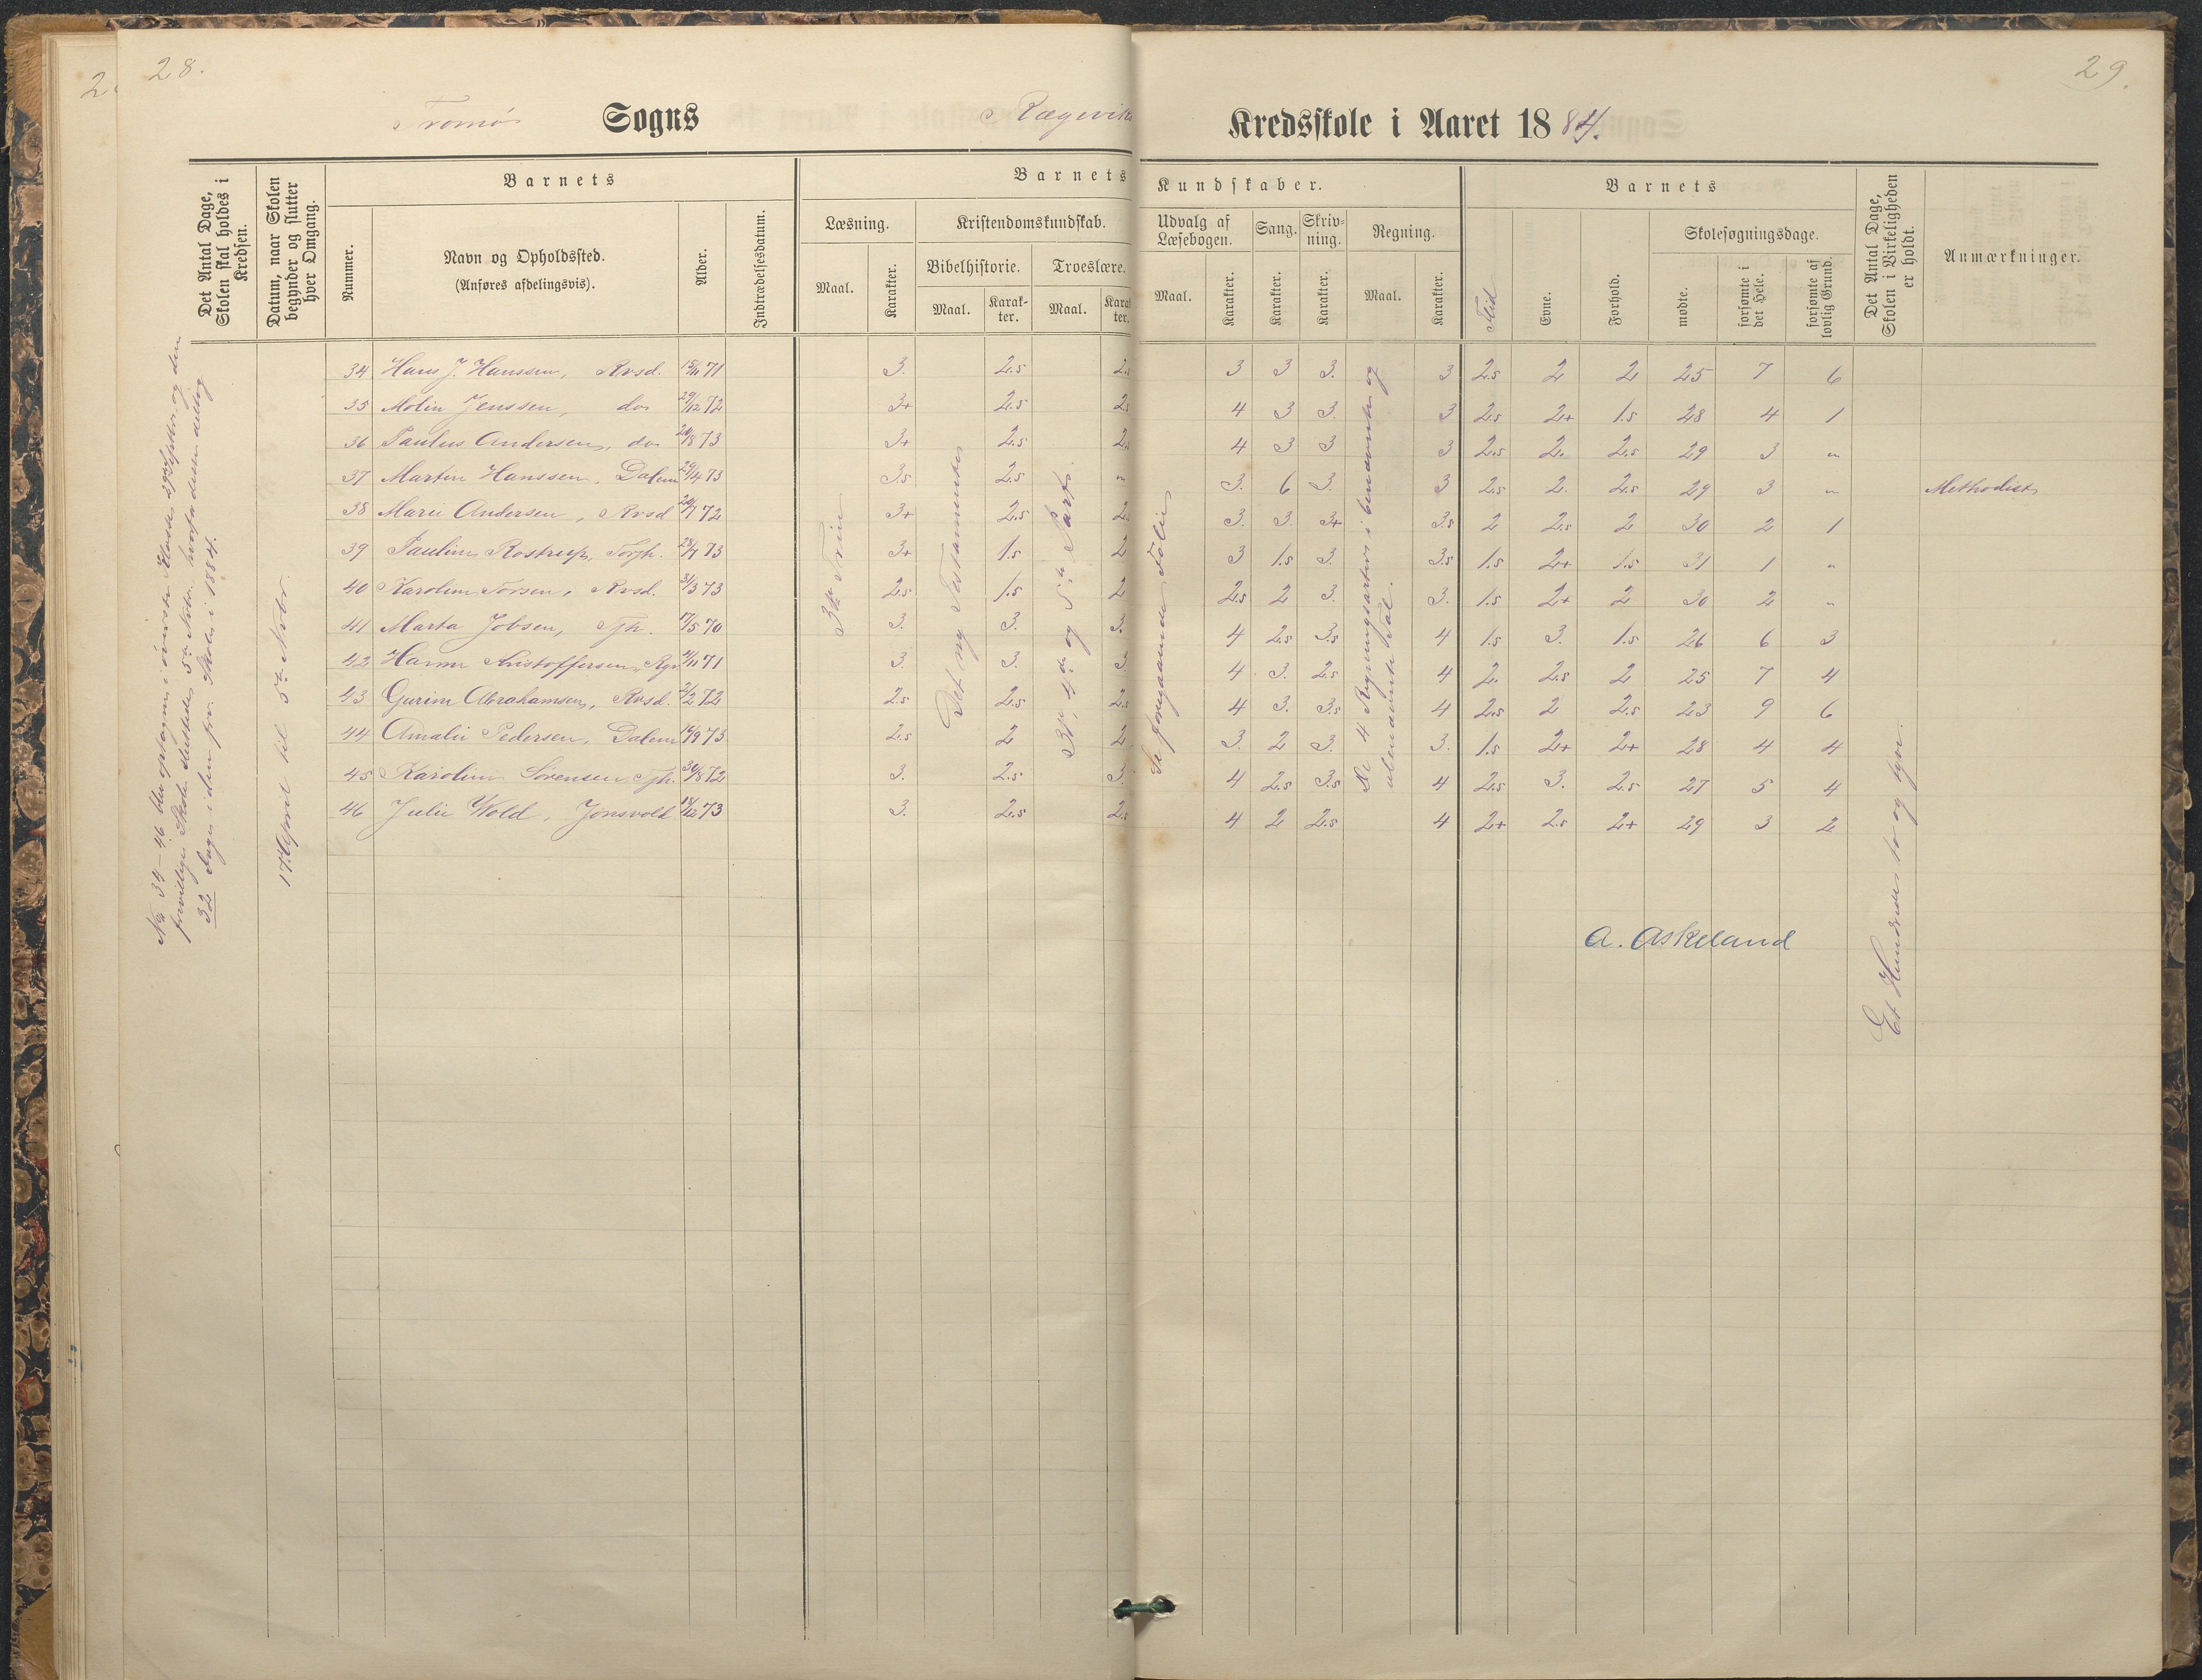 28.
29.
Tromø Sogns Rægevik Kredsskole i Aaret 1884.
Det Antal Dage, Skolen skal holdes i Kredsen.
Datum, naar Skolen begynder og slutter hver Omgang.
Barnets
Nummer.
Navn og Opholdssted.
(Anføres afdelingsvis).
Alder.
Indtrædelsesdatum.
Barnets Kundskaber.
Læsning.
Maal.
Karakter.
Kristendomskundskab.
Bibelhistorie.
Maal.
Karakter.
Troeslære.
Maal.
Karakter.
Udvalg af Læsebogen.
Maal.
Karakter.
Sang.
Karakter.
Skrivning.
Karakter.
Regning.
Maal.
Karakter.
Barnets
Flid
Evne.
Forhold.
Skolesøgningsdage.
mødte.
forsømte i det Hele.
forsømte af lovlig Grund.
Det Antal Dage, Skolen i Virkeligheden er holdt.
Anmærkninger.
34 Hans J. Hanssen, Rvsd. 15/11 71 3. 2.5 2.5 3 3 3. 3 2.5 2 2 25 7 6
35 Molin Jenssen, do 29/12 72 3+ 2.5 2.5 4 3 3. 3 2.5 2+ 1.5 28 4 1
36 Paulus Andersen, do 20/8 73 3+ 2.5 2.5 4 3 3 3 2.5 2. 2.5 29 3 "
37 Martin Hanssen, Dalen 29/4 73 3.5 2.5 " 3. 6 3. 3 2.5 2. 2.5 29 3 " Methodist
38 Marie Andersen, Rvsd 20/7 72 3+ 2.5 2. 3. 3. 3+ 3.5 2 2.5 2 30 2 1
39 Pauline Rostrup, Torjh. 28/7 73 3+ 1.5 2 3 1.5 3. 3.5 1.5 2+ 1.5 31 1 "
40 Karoline Torsen, Rvsd. 31/3 73 2.5 1.5 2 2.5 2 3. 3. 1.5 2+ 2 30 2 "
41 Marta Jobsen, Tjh. 17/5 70 3. 3. 3. 4 2.5 3.5 4 1.5 3. 1.5 26 6 3
42 Hanne Kristoffersen, Rgv 4/11 71 3. 3. 3. 4 3. 2.5 4 2. 2.5 2 25 7 4
43 Gurine Abrahamsen, Rvsd. 2/2 72 2.5 2.5 2.5 4 3. 3.5 4 2.5 2 2.5 23 9 6
44 Amalie Pedersen, Dalen 16/9 73 2.5 2 2 3. 2 3. 3. 1.5 2+ 2+ 28 4 4
45 Karoline Sørensen, Tjh. 30/8 72 3. 2.5 3. 4 2.5 3.5 4 2.5 3. 2.5 27 5 4
46 Julie Wold, Jonsvold 18/12 73 3. 2.5 2.5 4 2 2.5 4 2+ 2.5 2+ 29 3 2
No 34-46 blev optagne i øverste Klasse 29de Septbr. og den
frivillige Skole sluttede 5te Novbr. hvorfor disse
32 Dage i den frv. Skole i 1884.
17de April til 5te Novbr.
3die Trin
Det ny Testamente
3die, 4de og 5te Part.
Se foregaaende Folio
De 4 Regningsarter i benævnte og
ubenævnte Tal.
Et Hundrede to og tyve.
A. Askeland